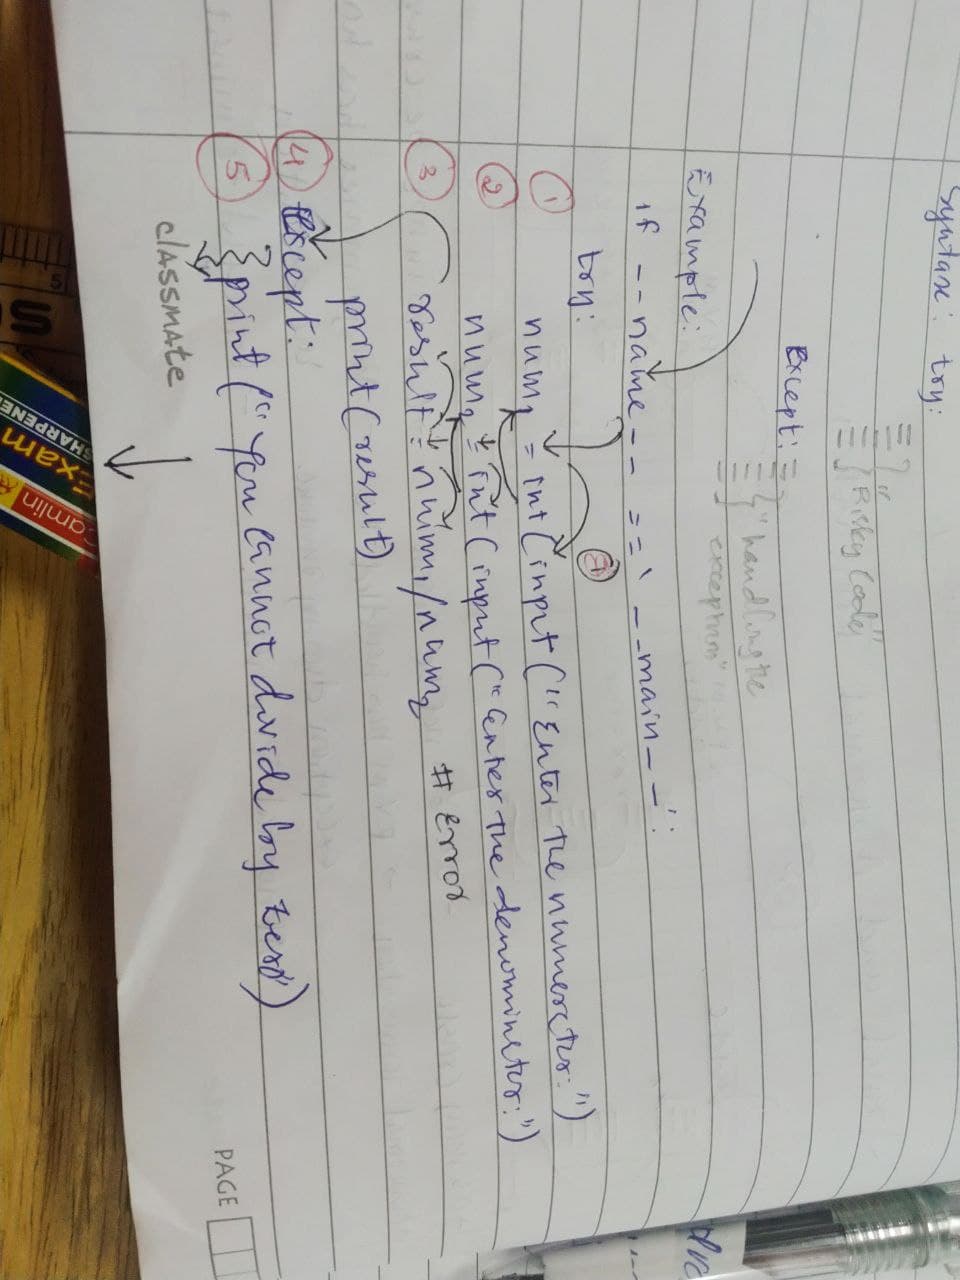 Syntax: try:
"Risky Code"
Except:
"handling the
exception"
Example:
if __name__ == '__main__':
try:
① num1 = int(input("Enter the numerator:")
② num2 = int(input("Enter the denominator:")
③ result = num1/num2 # Error
print(result)
④ Except:
⑤ print("you cannot divide by zero")
classmate
PAGE
Camlin
Exam
SHARPENER
5